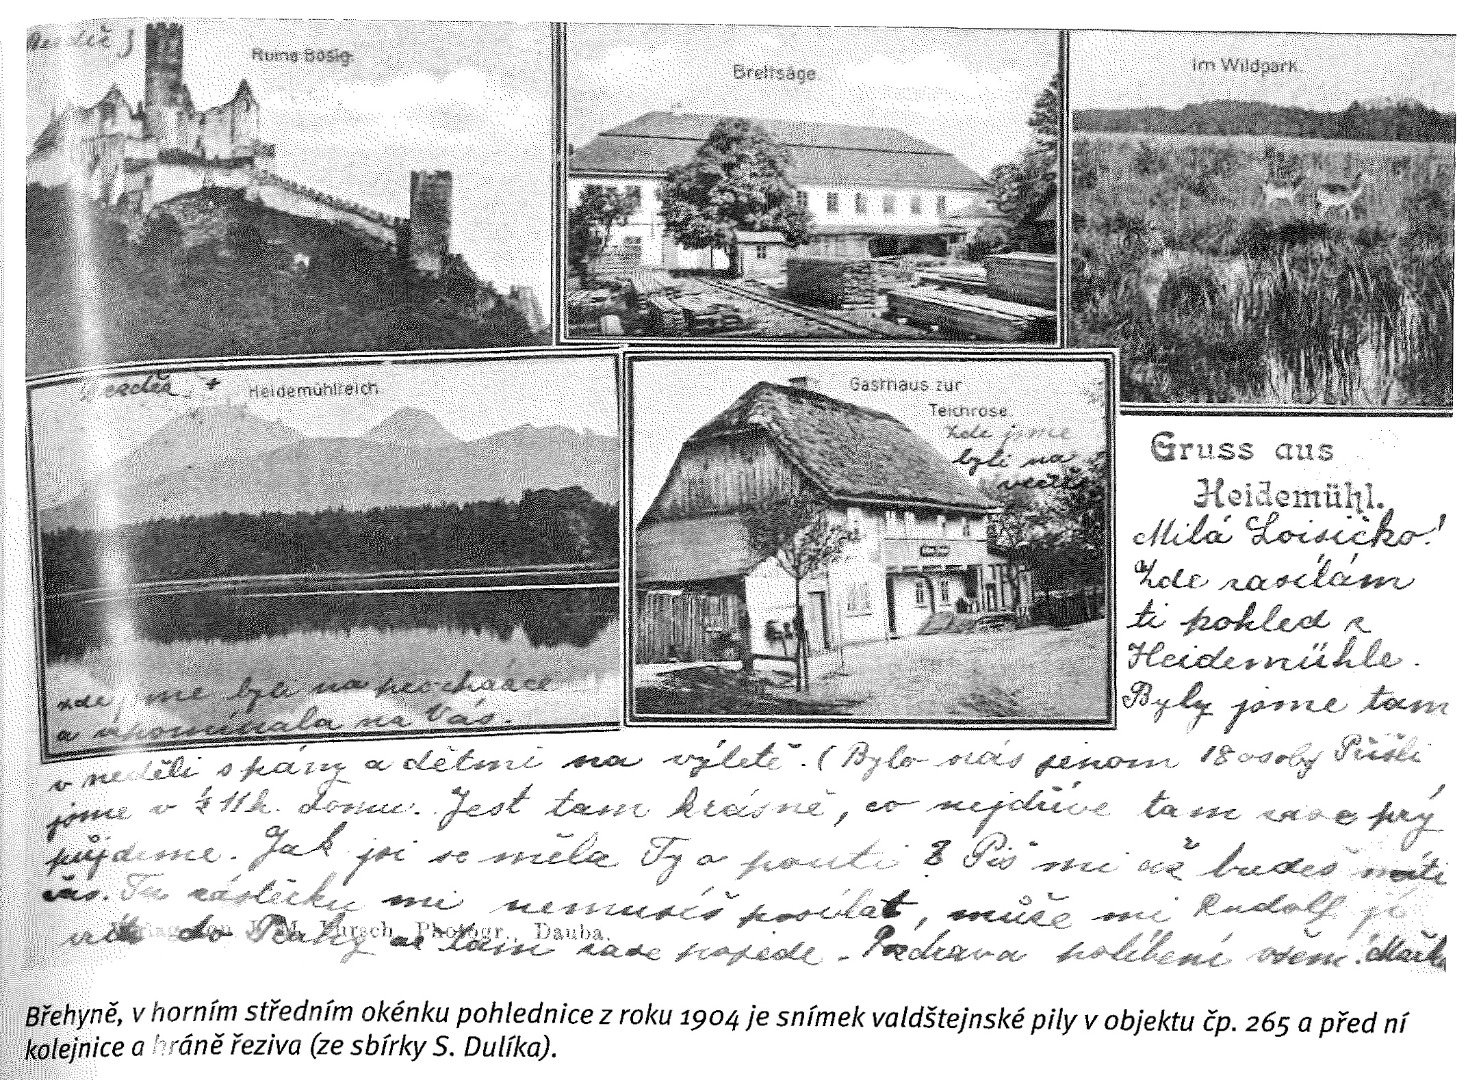 Bezděz
Ruine Bösig.
Brettsäge.
Im Wildpark.
Bezděz +
Heidemühlteich.
Gasthaus zur
Teichrose.
Zde jsme
byli na
večeři
Gruss aus
Heidemühl.
Milá Loisičko!
Zde zasílám
ti pohled z
Heidemühle.
Byly jsme tam
zde jsme byli na procházce
a vzpomínala na Vás.
v neděli s pány a dětmi na výletě. (Bylo nás jenom 18 osob) Přišli
jsme v ½ 11 h. domu. Jest tam krásně, co nejdříve tam zase prý
půjdeme. Jak jsi se měla Ty o pouti? Piš mi až budeš míti
čas. Tu zástěrku mi nemusíš posílat, může mi Rudolf ji
vzít do Prahy až tam zase pojede. Pozdrav a políbení všem!
Verlag von J. M. Hirsch, Photogr., Dauba.
Břehyně, v horním středním okénku pohlednice z roku 1904 je snímek valdštejnské pily v objektu čp. 265 a před ní
kolejnice a hráně řeziva (ze sbírky S. Dulíka).